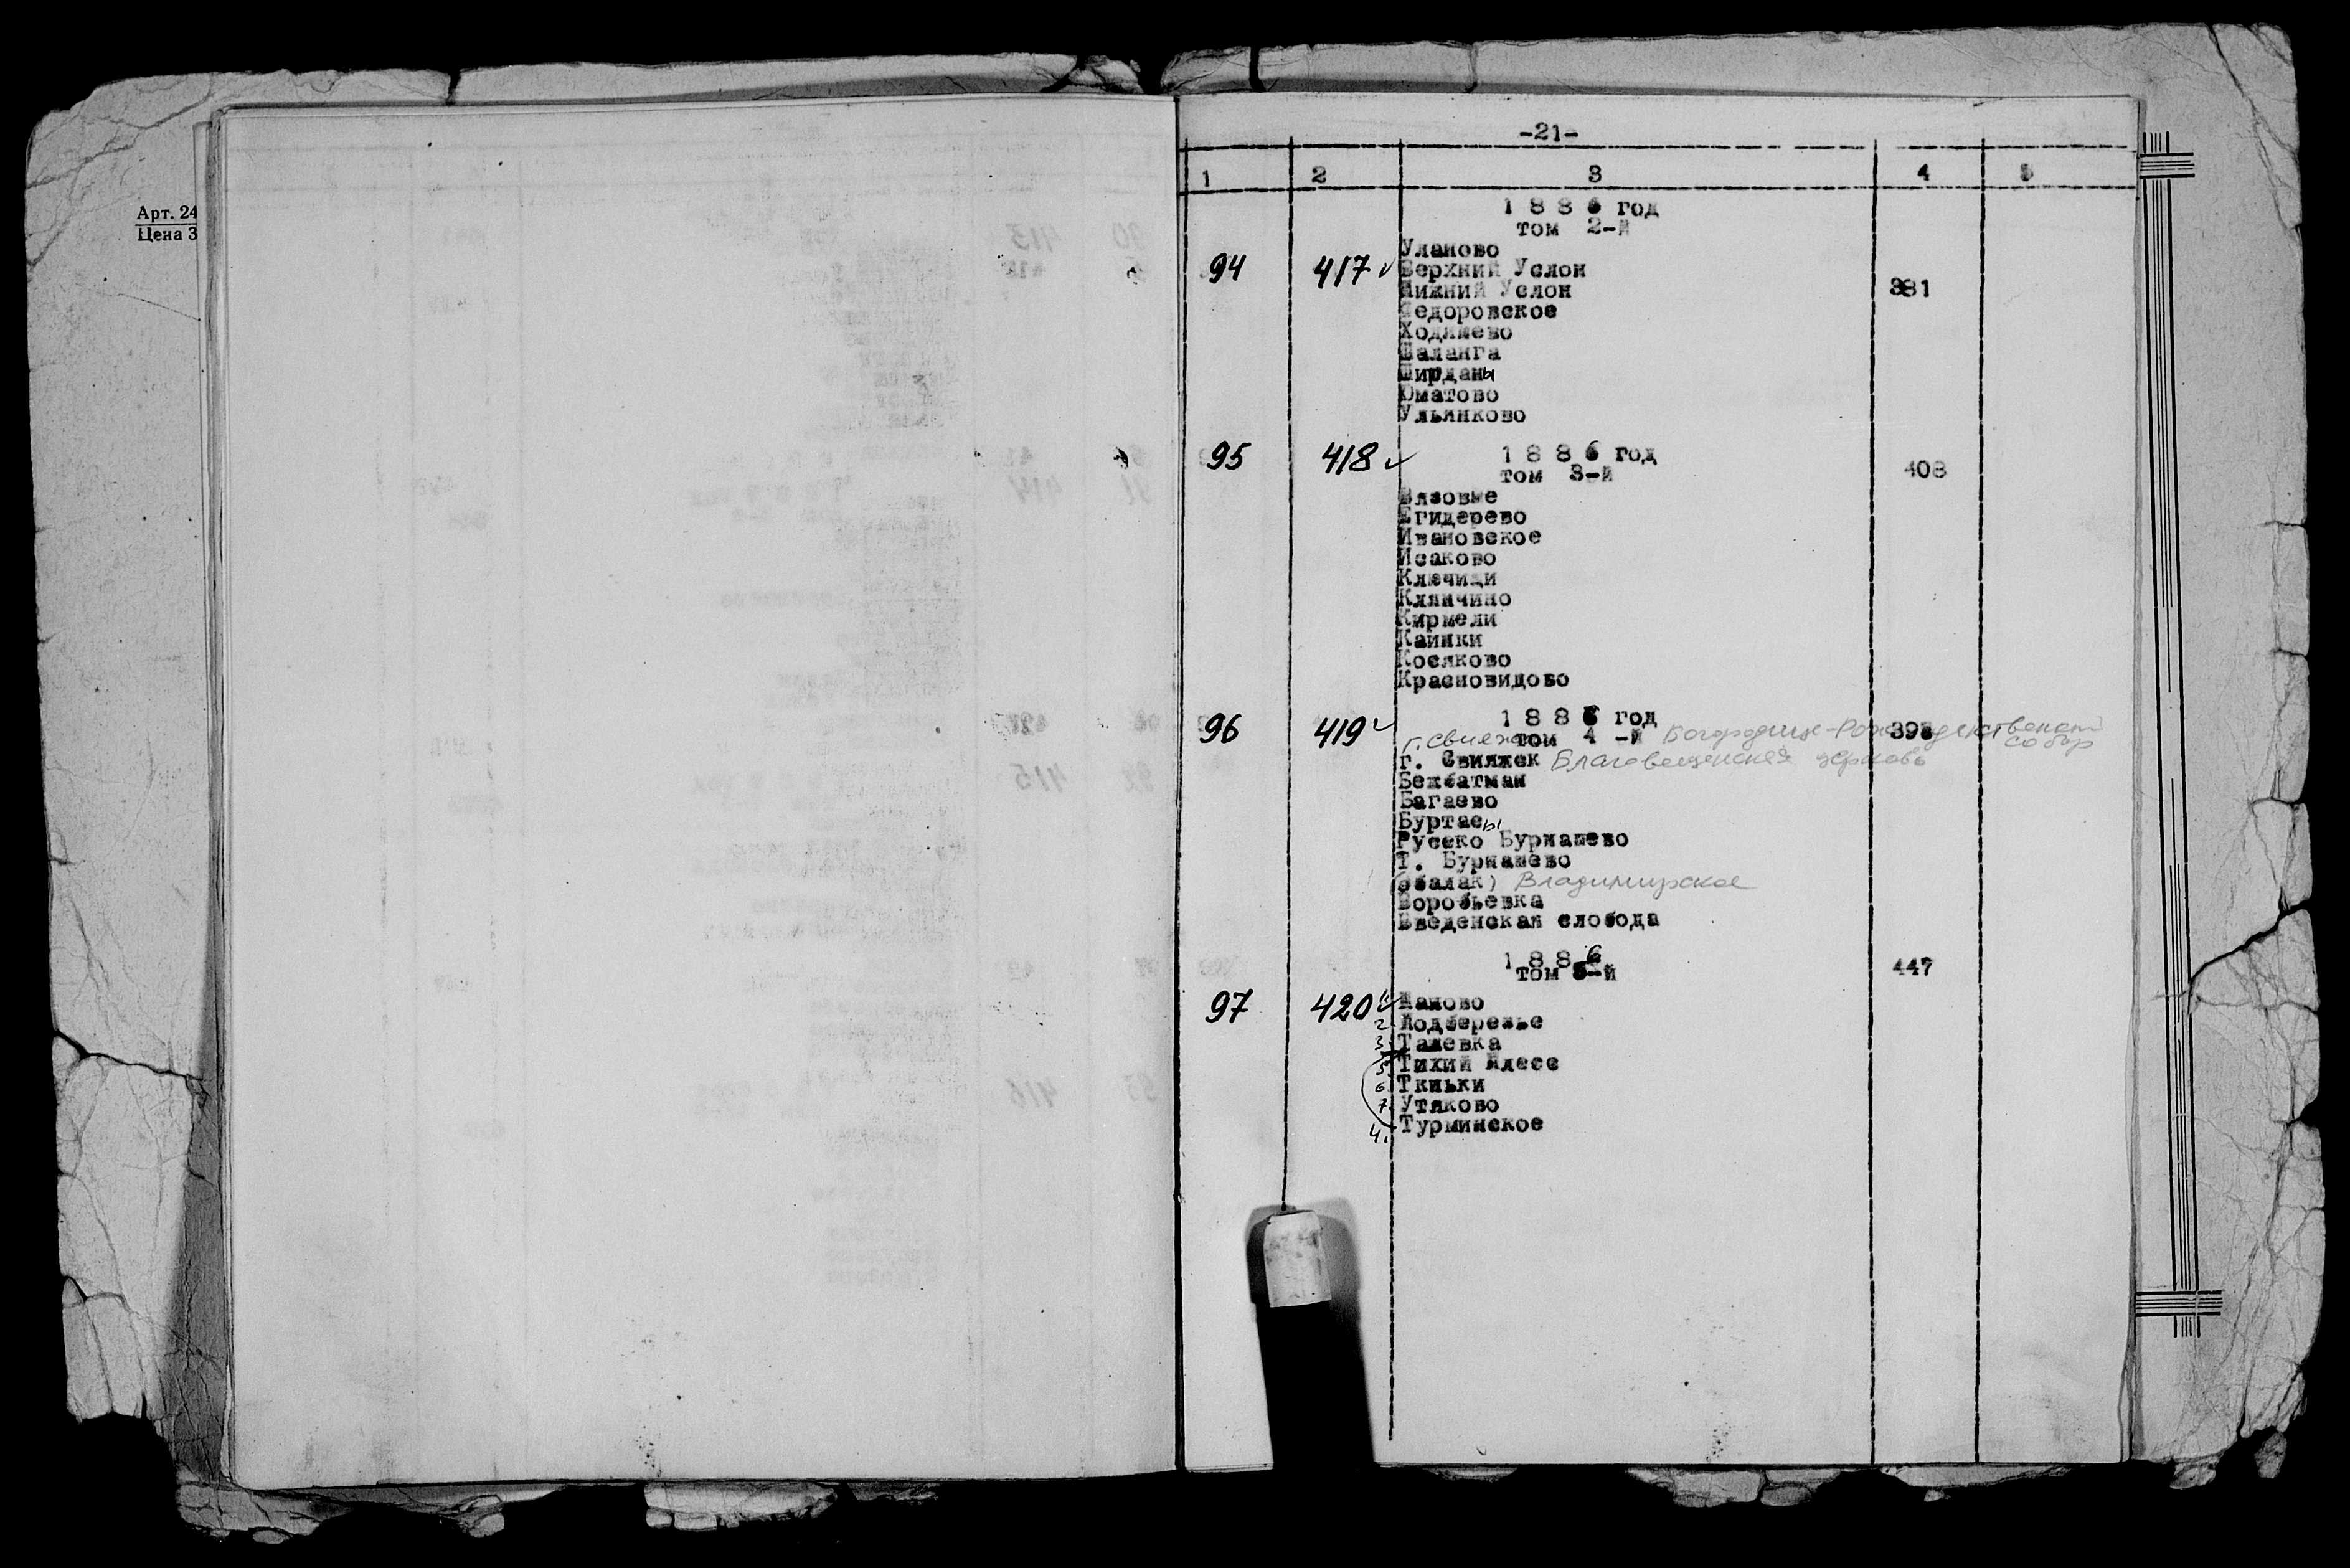 Арт. 24
Цена 3
-21-
1 2 3 4 5
1 8 8 6 год
том 2-й
Уланово
94 417 Верхний Услон
Нижний Услон 381
Федоровское
Ходяшево
Шаланга
Ширданы
Юматово
Ульянково
95 418 1 8 8 6 год 408
том 3-й
Вязовые
Егидерево
Ивановское
Исаково
Ключищи
Клянчино
Кирмели
Каинки
Косяково
Красновидово
96 419 1 8 8 6 год
том 4 -й Богородице-Рождественский собор
г. Свияжск Благовещенская церковь
Бехбатман
Багаево
Буртасы
Русско Бурнашево
Т. Бурнашево
(Обалак) Владимирское
Воробьевка
Введенская слобода
1 8 8 6 447
том 5-й
97 420 Паново
2. Подберезье
3. Ташевка
5. Тихий Плесс
6. Тиньки
7. Утяково
4. Турминское